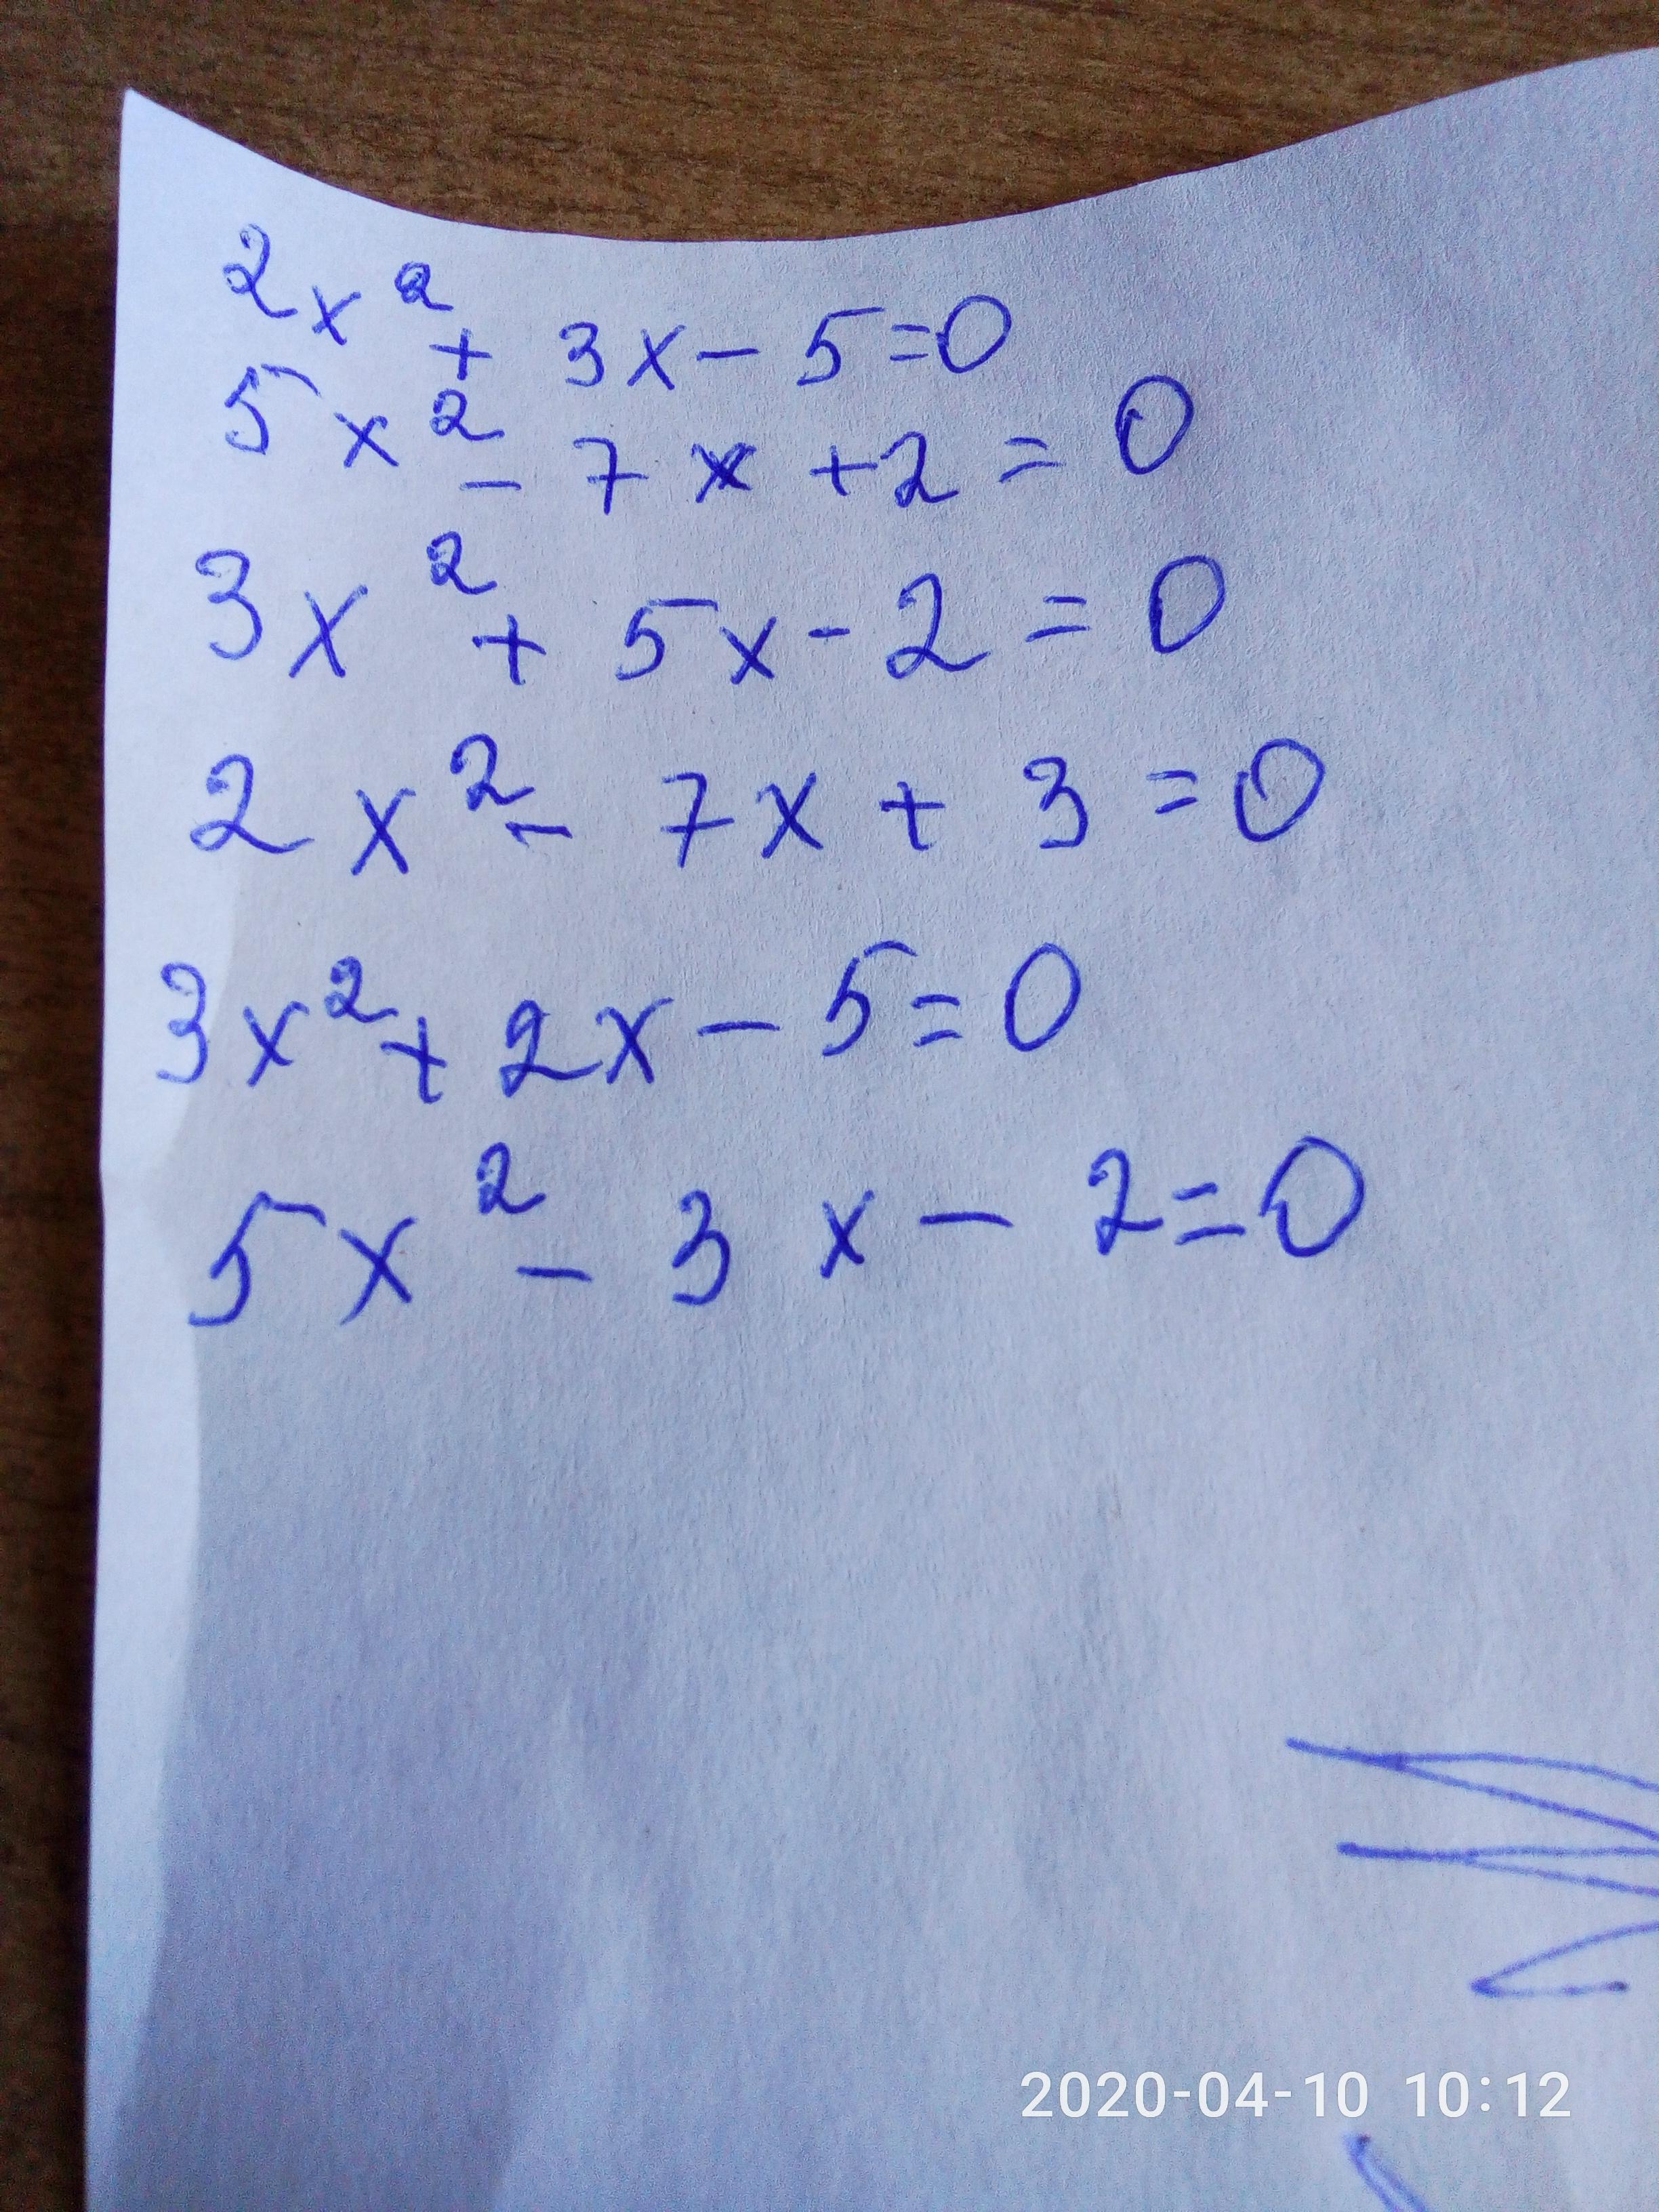 2x² + 3x - 5 = 0
5x² - 7x + 2 = 0
3x² + 5x - 2 = 0
2x² - 7x + 3 = 0
3x² + 2x - 5 = 0
5x² - 3x - 2 = 0
2020-04-10 10:12